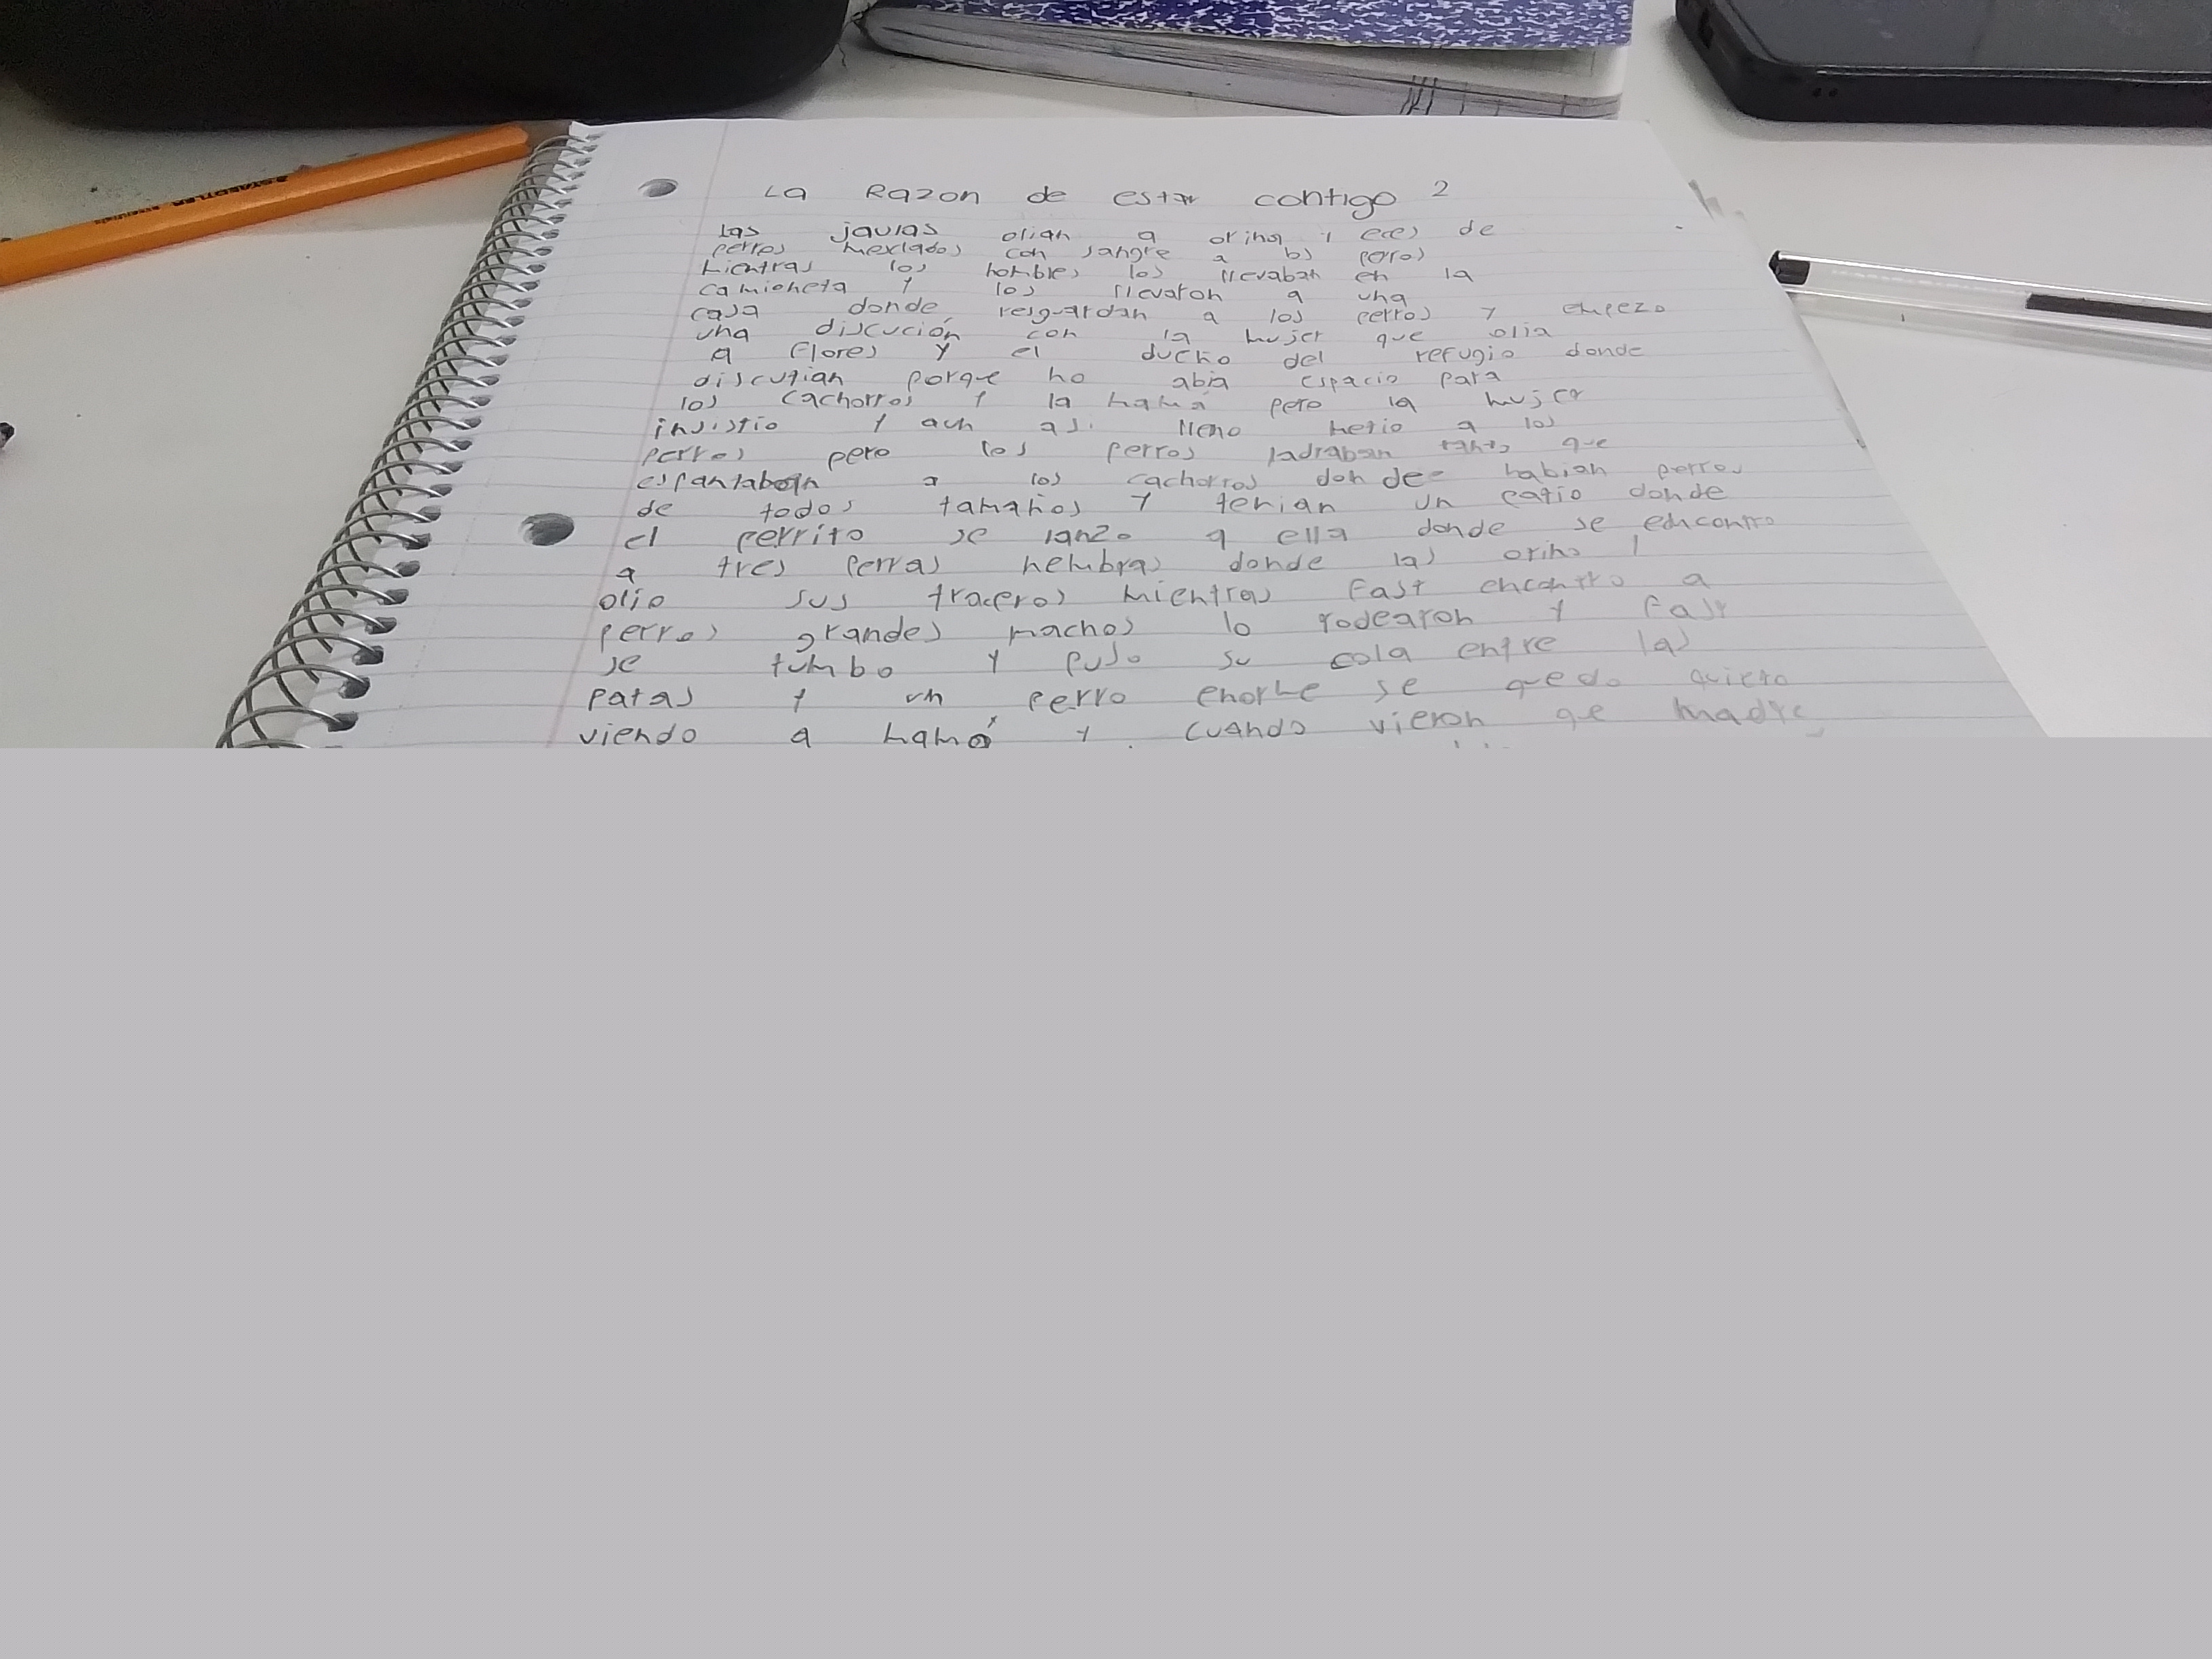 La Razon de estar contigo 2
las jaulas olian a orina y eces de
perros mexlados con sangre a los perros
mientras los hombres los llevaban en la
camioneta y los llevaron a una
casa donde resguardan a los perros y empezo
una discución con la mujer que olia
a flores y el dueño del refugio donde
discutian porque no abia espacio para
los cachorros y la mamá pero la mujer
insistio y aun asi lleno metio a los
perros pero los perros ladraban tanto que
espantaban a los cachorros donde habian perros
de todos tamaños y tenian un patio donde
el perrito se lanzo a ella donde se encontro
a tres perras hembras donde las orino y
olio sus traceros mientras Fast encontro a
perros grandes machos lo rodearon y Fast
se tumbo y puso su cola entre las
patas y un perro enorme se quedo quieto
viendo a mamá y cuando vieron qe madre
STAEDTLER